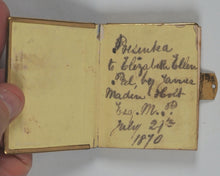 Presented
to Elizabeth Ellen
Peel, by James
Maden Holt
Esq. M. P.
July 21th
1870